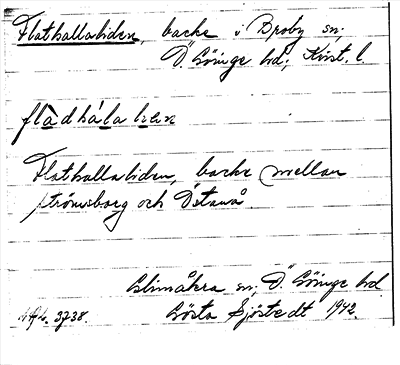 Flathallaliden, backe i Broby sn;
Ö. Göinge hd; Krist. l.
fladhála lian
Flathallaliden, backe mellan
Strömsborg och Östanå
Glimåkra sn, Ö. Göinge hd
3738. Gösta Sjöstedt 1942.